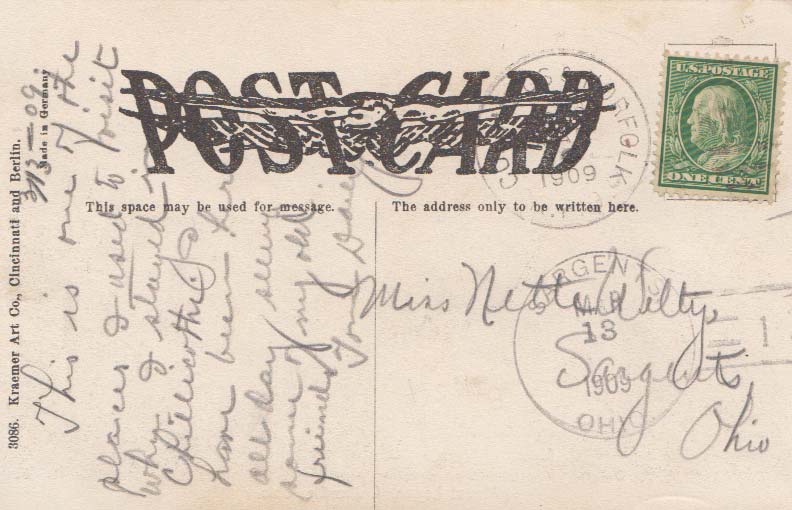 POST CARD
This space may be used for message.
The address only to be written here.
3086. Kraemer Art Co., Cincinnati and Berlin.
Made in Germany
3/13-09.
This is one of the
places I used to visit
when I stayed in
Chillicothe
have been here
all day seeing
some of my old
friends. Your
Miss Netta Welty,
Sargents,
Ohio
U.S. POSTAGE
ONE CENT
NORFOLK
1909
SARGENTS
MAR
13
1909
OHIO
1